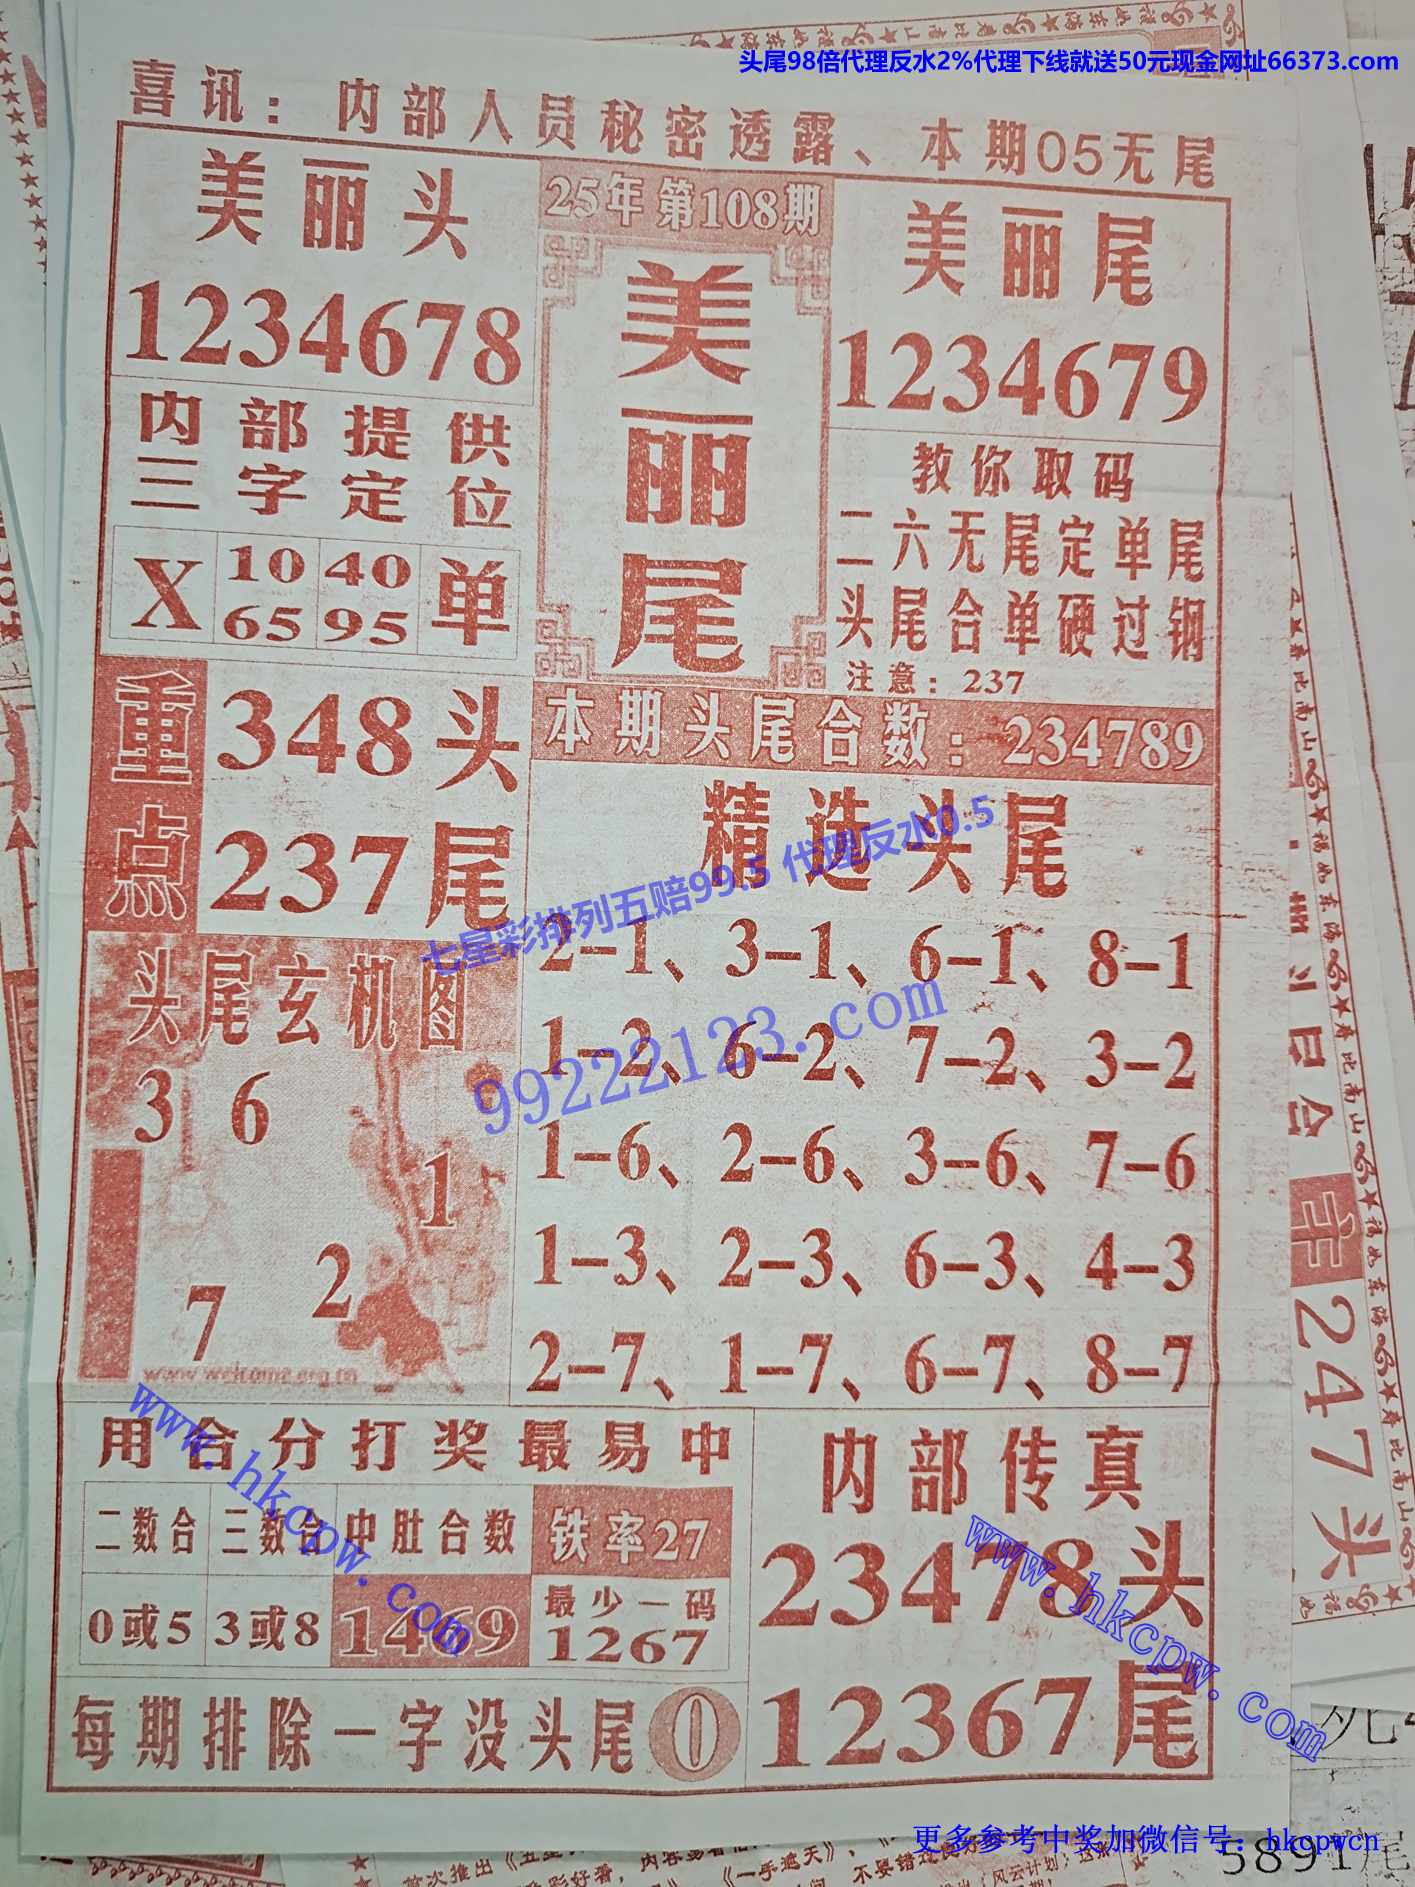 头尾98倍代理反水2%代理下线就送50元现金网址66373.com
喜讯：内部人员秘密透露、本期05无尾
美丽头
1234678
25年第108期
美丽尾
美丽尾
1234679
内部提供
三字定位
X 10 40 单
65 95
教你取码
二六无尾定单尾
头尾合单硬过钢
注意：237
重点
348头
237尾
本期头尾合数：234789
精选头尾
七星彩排列五赔99.5 代理反水0.5
99222123.com
2-1、3-1、6-1、8-1
1-2、6-2、7-2、3-2
1-6、2-6、3-6、7-6
1-3、2-3、6-3、4-3
2-7、1-7、6-7、8-7
头尾玄机图
3 6
1
2
7
www.welcome.org.cn
www.hkcpw.com
用合分打奖最易中
二数合 三数合 中肚合数 铁率27
0或5 3或8 1469 最少一码
1267
每期排除一字没头尾 0
内部传真
23478头
12367尾
www.hkcpw.com
247头
更多参考中奖加微信号：hkcpwcn
5891尾